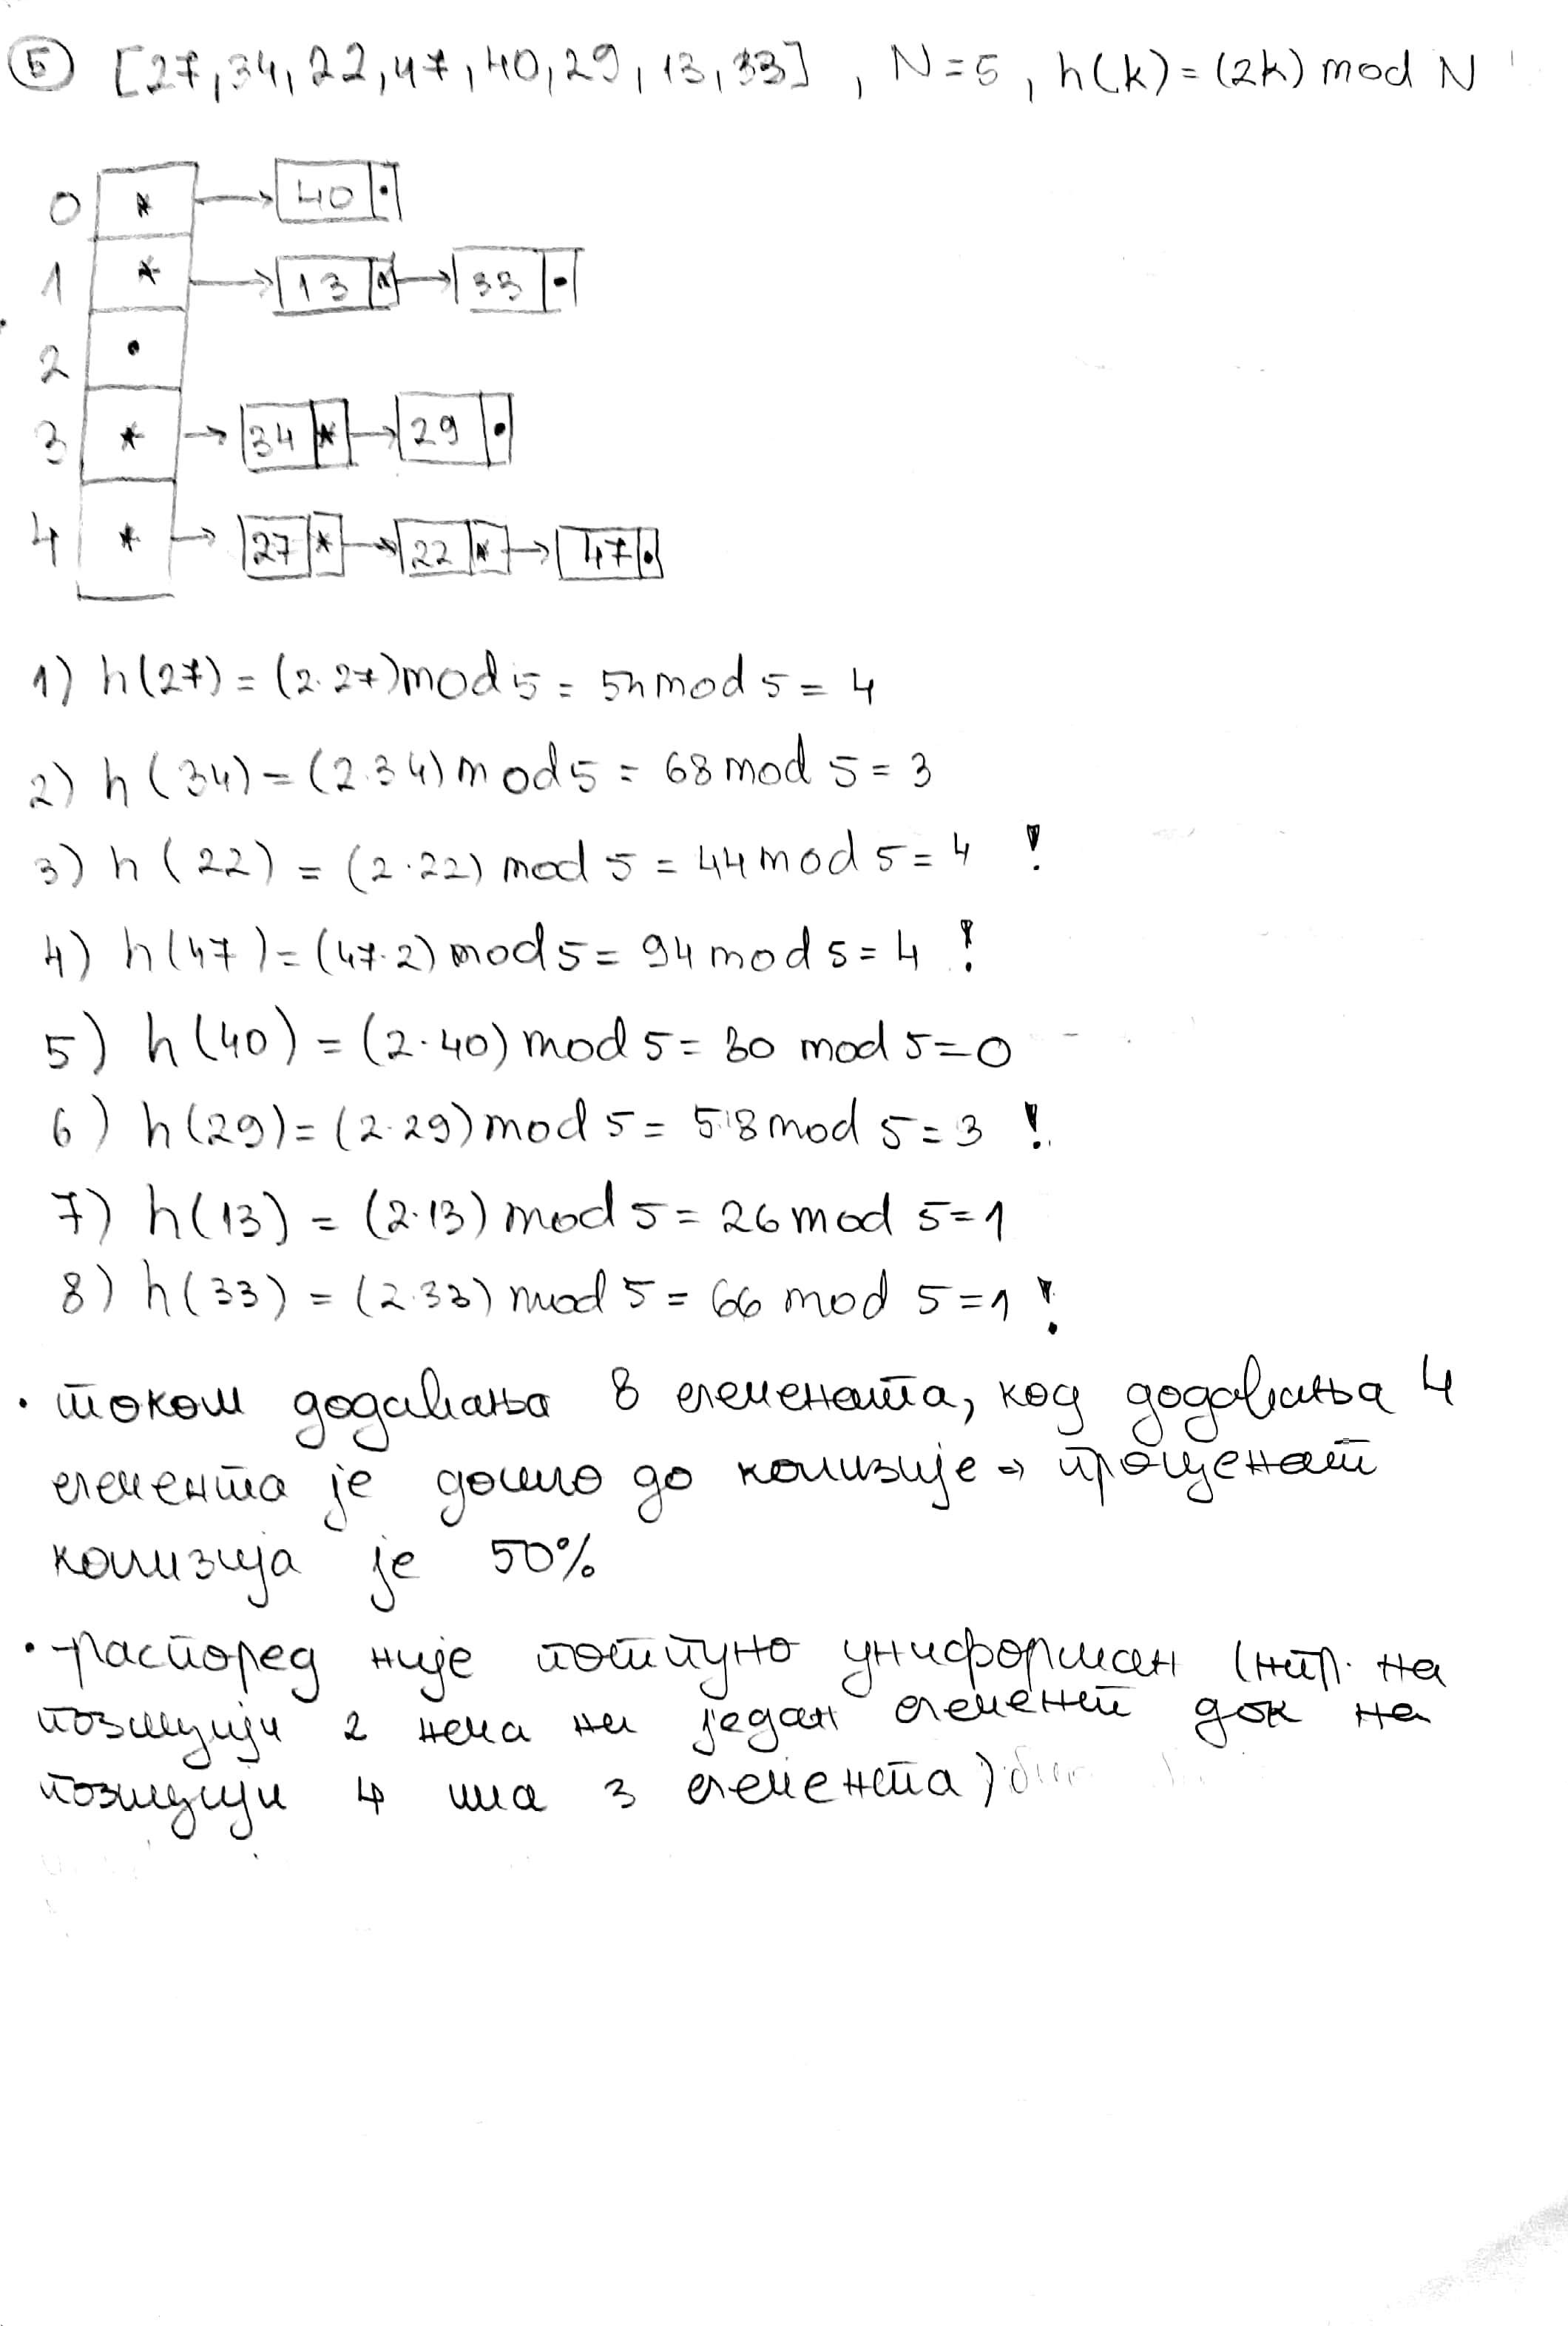 5 [27,34,22,47,40,29,13,33] , N=5 , h(k)=(2k) mod N
0 * → 40 •
1 * → 13 * → 33 •
2 •
3 * → 34 * → 29 •
4 * → 27 * → 22 * → 47 •
1) h(27) = (2·27)mod 5 = 54 mod 5 = 4
2) h(34) = (2·34)mod 5 = 68 mod 5 = 3
3) h(22) = (2·22) mod 5 = 44 mod 5 = 4 !
4) h(47) = (47·2) mod 5 = 94 mod 5 = 4 !
5) h(40) = (2·40) mod 5 = 80 mod 5 = 0
6) h(29) = (2·29) mod 5 = 58 mod 5 = 3 !
7) h(13) = (2·13) mod 5 = 26 mod 5 = 1
8) h(33) = (2·33) mod 5 = 66 mod 5 = 1 !
• током додавања 8 елемената, код додавања 4
елемента је дошло до колизије ⇒ проценат
колизија је 50%
• распоред није потпуно униформан (нпр. на
позицији 2 нема ни један елемент док на
позицији 4 има 3 елемента)